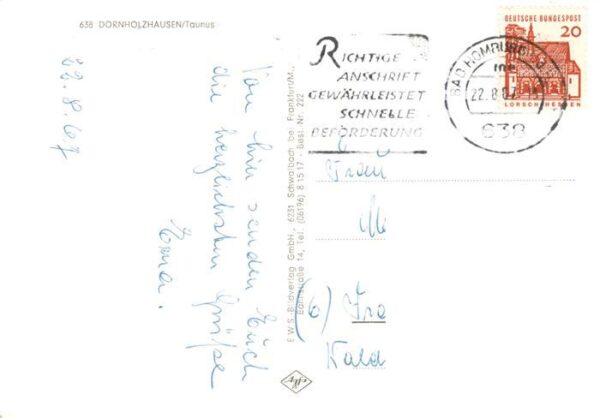 638 DORNHOLZHAUSEN/Taunus
22.8.67
Von hier senden Euch
die herzlichsten Grüße
Erna.
EWS-Bildverlag GmbH., 6231 Schwalbach bei Frankfurt/M.,
14, Tel. (06196) 8 15 17 · Best. Nr. 222
RICHTIGE
ANSCHRIFT
GEWÄHRLEISTET
SCHNELLE
BEFÖRDERUNG
DEUTSCHE BUNDESPOST
20
LORSCH HESSEN
BAD HOMBURG
me
22.8.67
638
Frau
M
(6) Fra
Wald